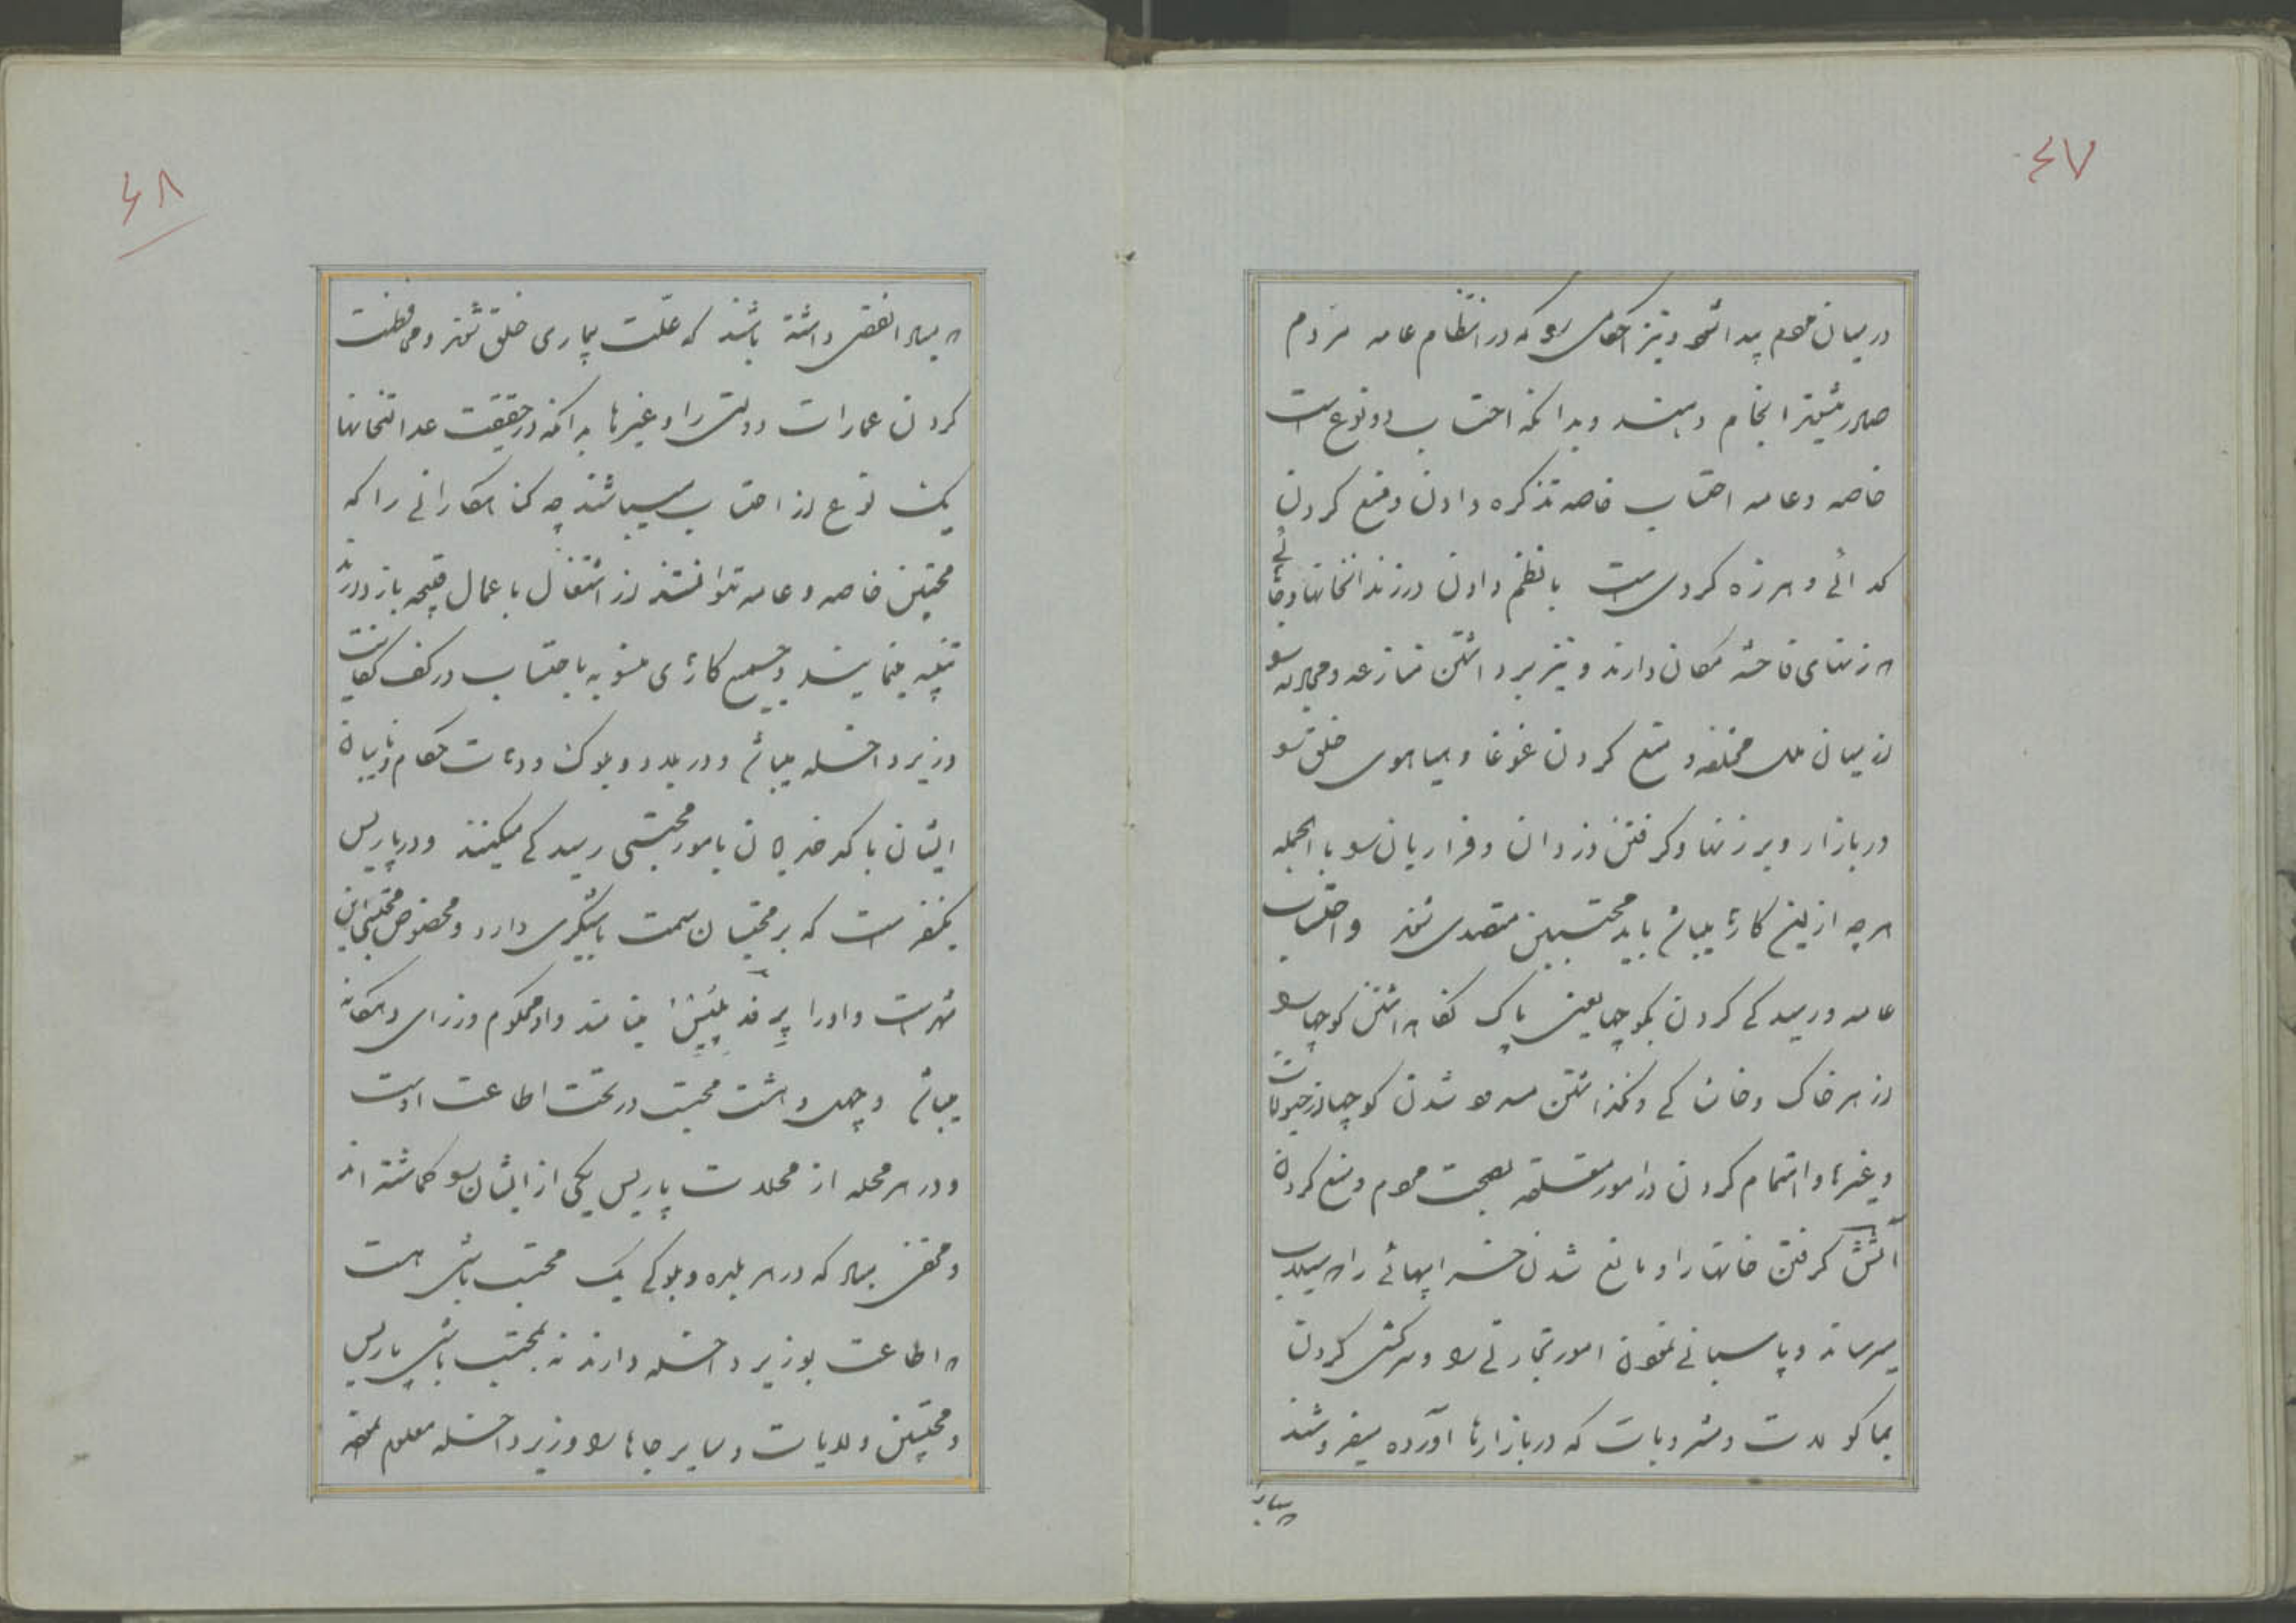 ۴۷
در میان مردم پیدا شود و نیز احکامی را که در انتظام عامه مردم
صادر میشود انجام دهند و بدانکه احتساب دو نوع است
خاصه و عامه احتساب خاصه تذکره دادن و منع کردن
گدائی و هرزه گردی است با نظم دادن در زندانخانها و جائی
که زنهای فاحشه مکان دارند و نیز برداشتن منازعه و مجادله را
از میان ملل مختلفه و منع کردن غوغا و هیاهوی خلق را
در بازار و برزنها و گرفتن دزدان و فراریان را بالجمله
هرچه از این کارها میباشد باید محتسبین متصدی شوند و احتساب
عامه و رسیدگی کردن بکوچها یعنی پاک نگاه داشتن کوچها را
از هر خاک و خاشاکی و نگذاشتن مسدود شدن کوچها از حیوانات
و غیرها و اهتمام کردن در امور متعلقه بصحت مردم و منع کردن
آتش گرفتن خانها را و مانع شدن خرابیهائی را که سیلاب
میرساند و پاسبانی نمودن امور تجارتی را و سرکشی کردن
بماکولات و مشروبات که در بازارها آورده میفروشند
که مبادا
۴۸
که مبادا نقصی داشته باشند که علّت بیماری خلق شوند و محافظت
کردن عمارات دولتی را و غیرها بدانکه در حقیقت عدالتخانها
یک نوع از احتساب میباشند چه گناهکارانی را که
محتسبین خاصه و عامه نتوانستند از اشتغال باعمال قبیحه باز دارند
تنبیه مینمایند و جمیع کارهای منسوبه باحتساب در کف کفایت
وزیر داخله میباشد و در بلاد و بلوک و دهات حکام و نایبان
ایشان با کدخدایان بامور محتسبی رسیدگی میکنند و در پاریس
یکنفر است که بر محتسبان سمت باشیگری دارد و مخصوص محتسبی این
شهر است و او را پرفه پلیس مینامند و او محکوم وزرای دهگانه
میباشد و چهل و هشت محتسب در تحت اطاعت اوست
و در هر محله از محلات پاریس یکی از ایشان را گماشته اند
و مخفی مباد که در هر بلده و بلوکی یک محتسب باشی هست
که اطاعت بوزیر داخله دارند نه بمحتسب باشی پاریس
و محتسبین ولایات و سایر جاها را وزیر داخله معلوم نموده